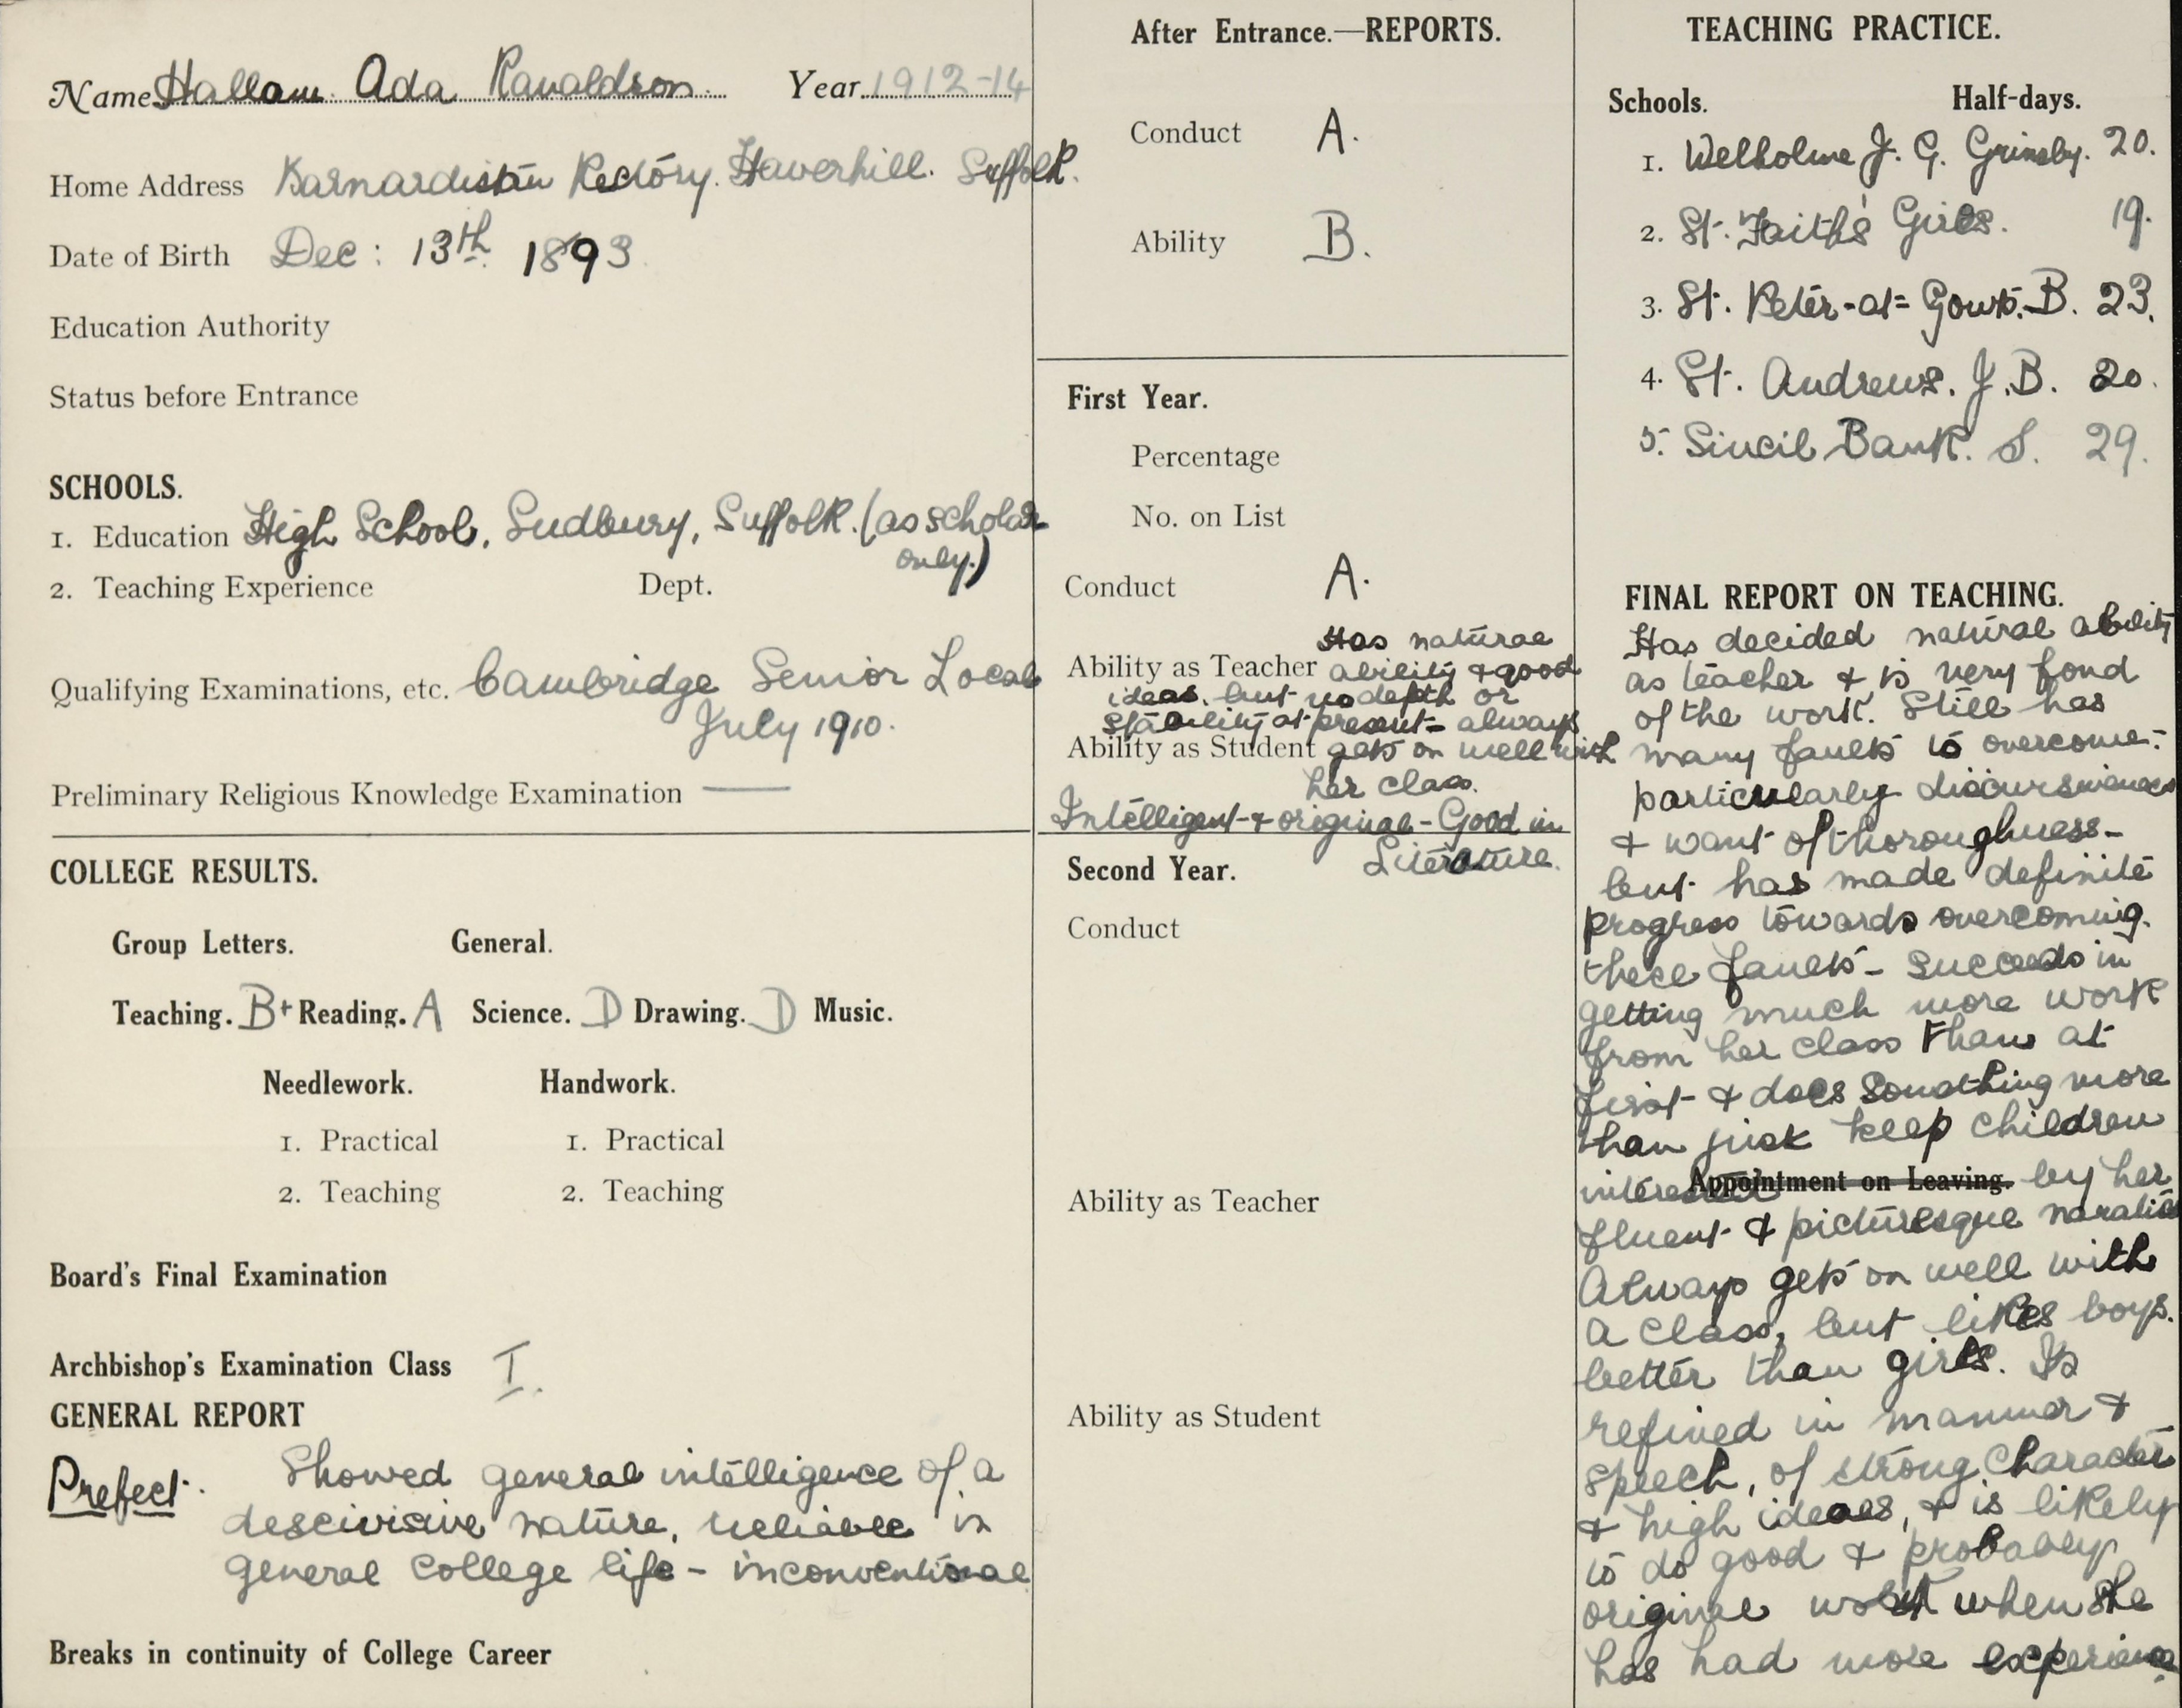 Name Hallam Ada Ranaldson Year 1912-14
Home Address Barnardiston Rectory. Haverhill. Suffolk.
Date of Birth Dec: 13th 1893
Education Authority
Status before Entrance
SCHOOLS.
1. Education High School, Sudbury, Suffolk. (as scholar
only.)
2. Teaching Experience Dept.
Qualifying Examinations, etc. Cambridge Senior Local
July 1910.
Preliminary Religious Knowledge Examination —
COLLEGE RESULTS.
Group Letters. General.
Teaching. B+ Reading. A Science. D Drawing. D Music.
Needlework. Handwork.
1. Practical 1. Practical
2. Teaching 2. Teaching
Board's Final Examination
Archbishop's Examination Class I.
GENERAL REPORT
Prefect. Showed general intelligence of a
descivisive nature, reliable in
general College life - inconventional
Breaks in continuity of College Career
After Entrance.—REPORTS.
Conduct A.
Ability B.
First Year.
Percentage
No. on List
Conduct A.
Has natural
Ability as Teacher ability & good
ideas, but no depth or
stability at present - always
Ability as Student gets on well with
her class.
Intelligent & original - Good in
Literature.
Second Year.
Conduct
Ability as Teacher
Ability as Student
TEACHING PRACTICE.
Schools. Half-days.
1. Welholme J. G. Grimsby. 20.
2. St. Faith's Girls. 19.
3. St. Peter-at=Gowts. B. 23.
4. St. Andrews. J. B. 20.
5. Sincil Bank. S. 29.
FINAL REPORT ON TEACHING.
Has decided natural ability
as teacher & is very fond
of the work. Still has
many faults to overcome -
particularly discursiveness
& want of thoroughness -
but has made definite
progress towards overcoming
these faults - succeeds in
getting much more work
from her class than at
first & does something more
than just keep children
interested Appointment on Leaving. by her
fluent & picturesque naration
Always gets on well with
a class, but likes boys.
better than girls. Is
refined in manner &
speech, of strong character
& high ideals, & is likely
to do good & probably
original work when she
has had more experience